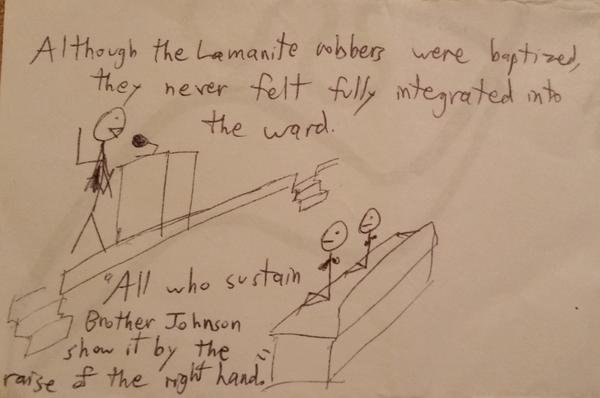 Although the Lamanite robbers were baptized,
they never felt fully integrated into
the ward.
"All who sustain
Brother Johnson
show it by the
raise of the right hand."